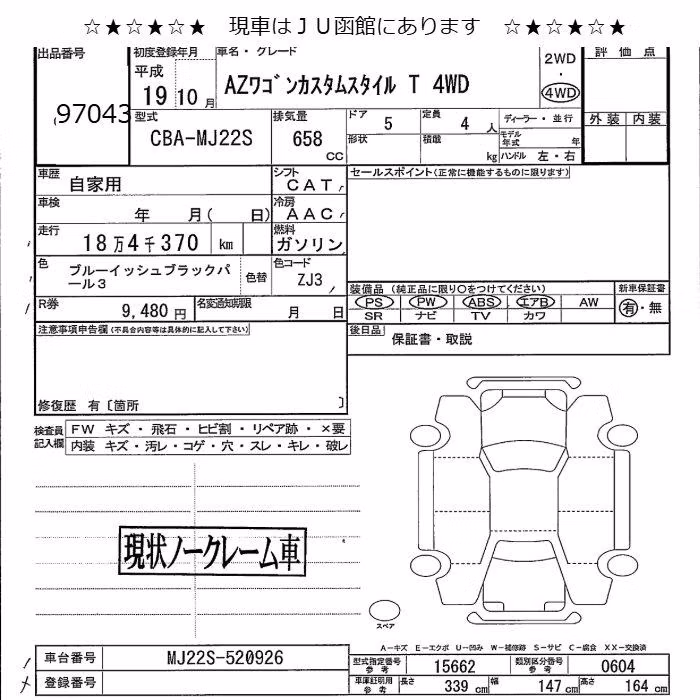 ☆★☆★☆★ 現車はＪＵ函館にあります ☆★☆★☆★
出品番号 初度登録年月 車名・グレード 評価点
97043 平成 19 10 月 AZﾜｺﾞﾝカスタムスタイル T 4WD 2WD ・ 4WD
型式 排気量 ドア 5 定員 4 人 ディーラー・並行 外装 内装
CBA-MJ22S 658 CC 形状 積載 kg モデル年式 年
ハンドル 左・右
車歴 自家用 シフト CAT セールスポイント(正常に機能するものに限ります)
車検 年 月( 日) 冷房 AAC
走行 18万4千370 km 燃料 ガソリン
色 ブルーイッシュブラックパール3 色替 色コード ZJ3
装備品 (純正品に限り〇をつけてください) 新車保証書
R券 9,480 円 名変通知期限 月 日 PS PW ABS エアB AW 有・無
SR ナビ TV カワ
注意事項申告欄(不具合内容等は具体的に記入して下さい) 後日品 保証書・取説
修復歴 有〔箇所 〕
検査員記入欄 FW キズ・飛石・ヒビ割・リペア跡・×要
内装 キズ・汚レ・コゲ・穴・スレ・キレ・破レ
現状ノークレーム車
スペア
A－キズ E－エクボ U－凹み W－補修跡 S－サビ C－腐食 XX－交換済
車台番号 MJ22S-520926 型式指定番号 参考 15662 類別区分番号 参考 0604
登録番号 車庫証明用 参考 長さ 339 cm 幅 147 cm 高さ 164 cm